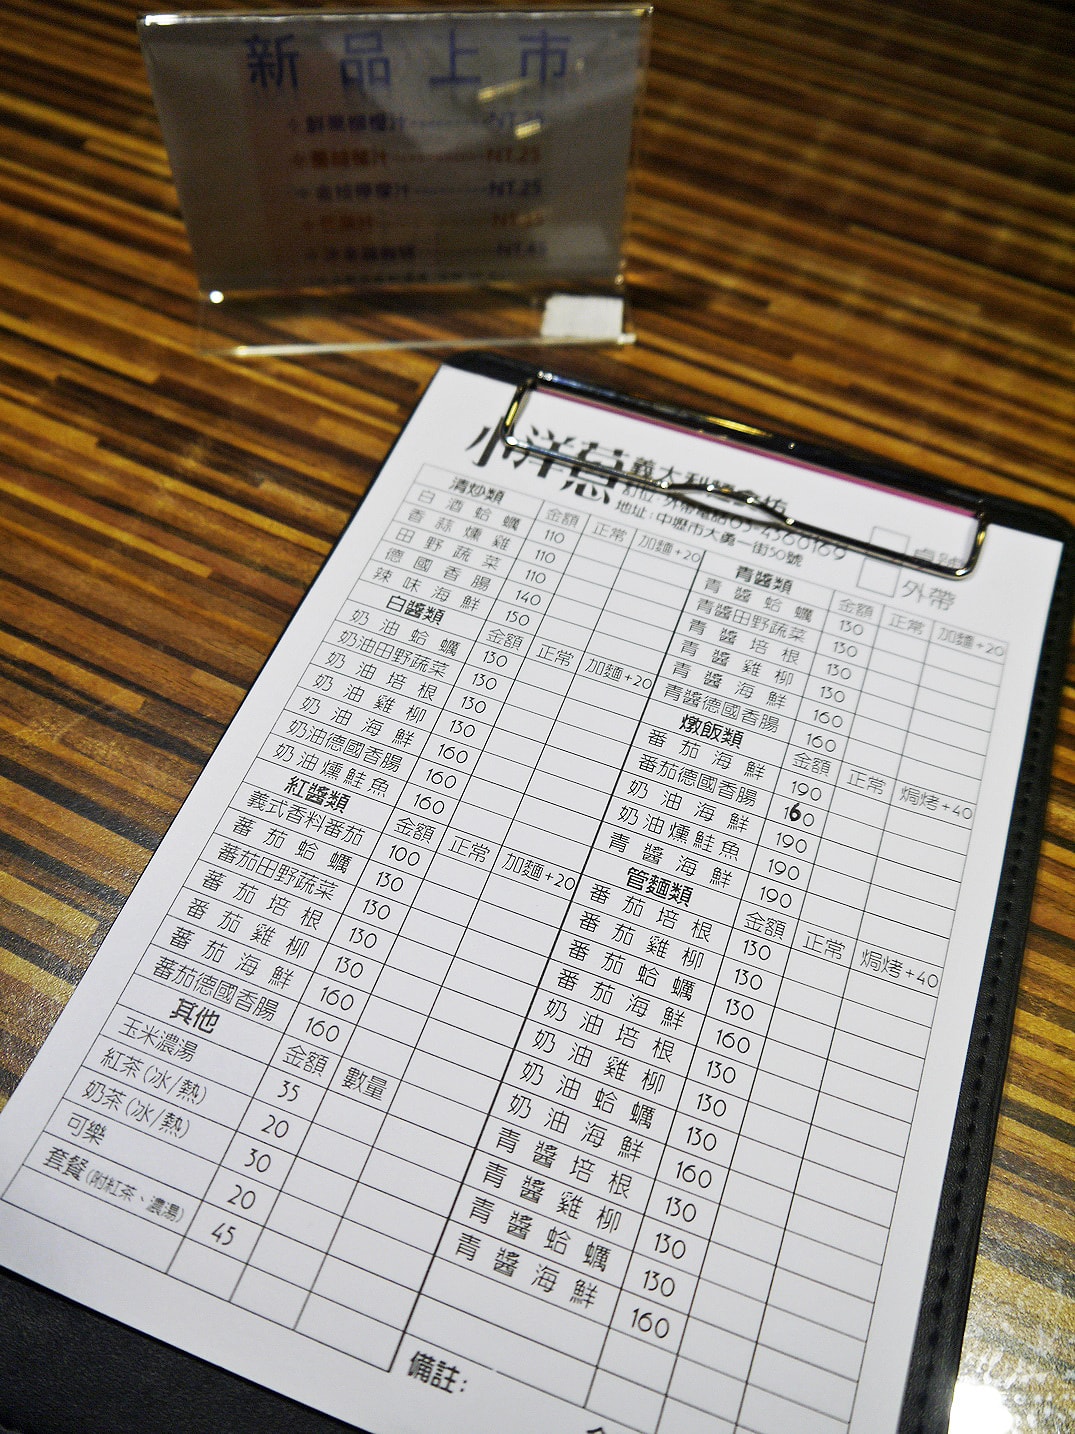 新品上市
NT.25
NT.25
小洋蔥 義大利麵食坊
訂位・外帶電話03-4560169
地址:中壢市大勇一街50號
桌號
外帶
清炒類 金額 正常 加麵+20
白酒蛤蠣 110
香蒜燻雞 110
田野蔬菜 110
德國香腸 140
辣味海鮮 150
白醬類 金額 正常 加麵+20
奶油蛤蠣 130
奶油田野蔬菜 130
奶油培根 130
奶油雞柳 130
奶油海鮮 160
奶油德國香腸 160
奶油燻鮭魚 160
紅醬類 金額 正常 加麵+20
義式香料番茄 100
蕃茄蛤蠣 130
蕃茄田野蔬菜 130
蕃茄培根 130
蕃茄雞柳 130
蕃茄海鮮 160
蕃茄德國香腸 160
其他 金額 數量
玉米濃湯 35
紅茶(冰/熱) 20
奶茶(冰/熱) 30
可樂 20
套餐(附紅茶、濃湯) 45
青醬類 金額 正常 加麵+20
青醬蛤蠣 130
青醬田野蔬菜 130
青醬培根 130
青醬雞柳 130
青醬海鮮 160
青醬德國香腸 160
燉飯類 金額 正常 焗烤+40
番茄海鮮 190
番茄德國香腸 160
奶油海鮮 190
奶油燻鮭魚 190
青醬海鮮 190
管麵類 金額 正常 焗烤+40
番茄培根 130
番茄雞柳 130
番茄蛤蠣 130
番茄海鮮 160
奶油培根 130
奶油雞柳 130
奶油蛤蠣 130
奶油海鮮 160
青醬培根 130
青醬雞柳 130
青醬蛤蠣 130
青醬海鮮 160
備註: